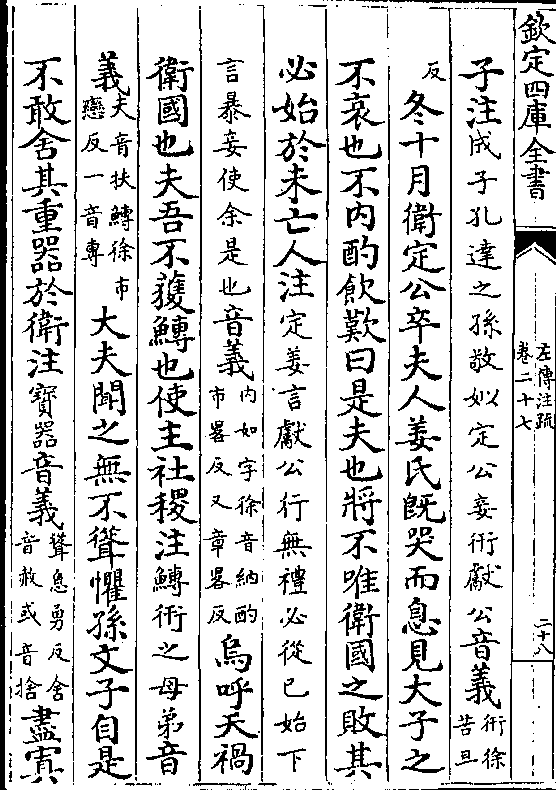 欽定四庫全書
左傳注疏
卷二十七
二十八
子注成子孔達之孫敬姒定公妾衎獻公音義衎徐苦旦
反冬十月衛定公卒夫人姜氏旣哭而息見大子之
不哀也不內酌飲歎曰是夫也將不唯衛國之敗其
必始於未亡人注定姜言獻公行無禮必從已始下
言暴妾使余是也音義內如字徐音納酌市畧反又章畧反烏呼天禍
衛國也夫吾不獲鱄也使主社稷注鱄衎之母弟音
義夫音扶鱄徐市戀反一音專大夫聞之無不聳懼孫文子自是
不敢舍其重器於衛注寶器音義聳息勇反舍音赦或音捨盡寘